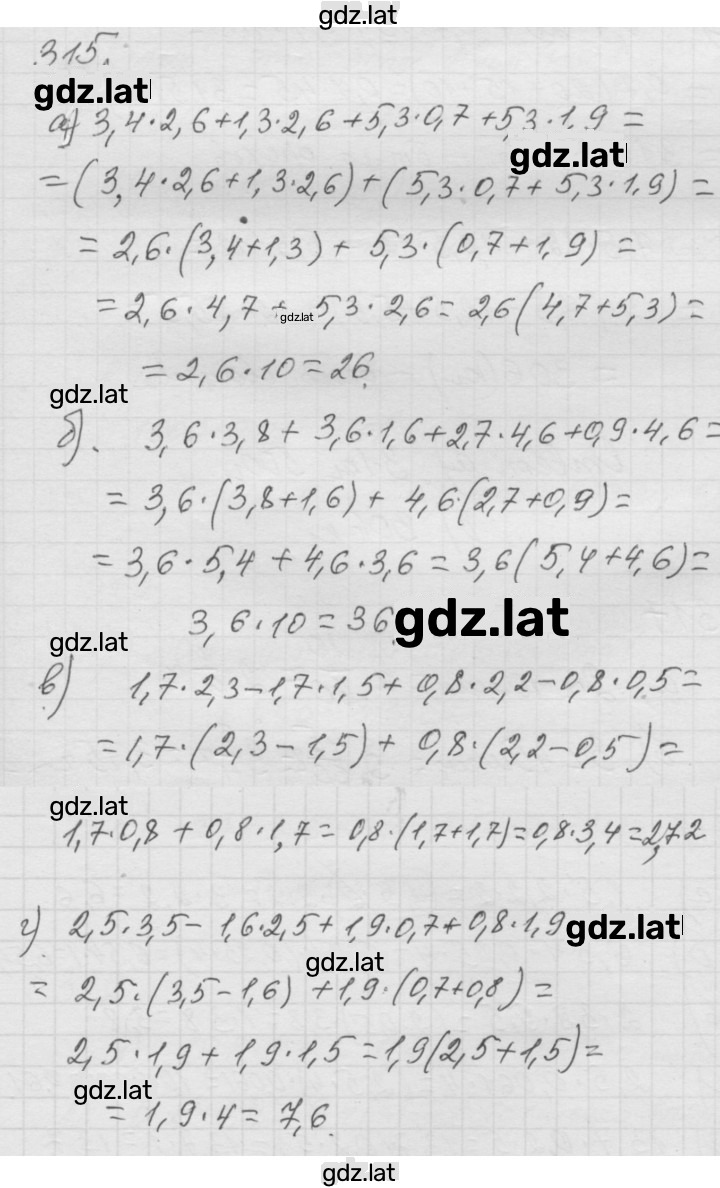 gdz.lat
315.
gdz.lat
а) 3,4·2,6+1,3·2,6+5,3·0,7+5,3·1,9=
gdz.lat
=(3,4·2,6+1,3·2,6)+(5,3·0,7+5,3·1,9)=
=2,6·(3,4+1,3)+5,3·(0,7+1,9)=
=2,6·4,7+5,3·2,6=2,6(4,7+5,3)=
gdz.lat
=2,6·10=26.
gdz.lat
б). 3,6·3,8+3,6·1,6+2,7·4,6+0,9·4,6=
=3,6·(3,8+1,6)+4,6·(2,7+0,9)=
=3,6·5,4+4,6·3,6=3,6(5,4+4,6)=
3,6·10=36.
gdz.lat
gdz.lat
в) 1,7·2,3-1,7·1,5+0,8·2,2-0,8·0,5=
=1,7·(2,3-1,5)+0,8·(2,2-0,5)=
gdz.lat
1,7·0,8+0,8·1,7=0,8·(1,7+1,7)=0,8·3,4=2,72
г) 2,5·3,5-1,6·2,5+1,9·0,7+0,8·1,9
gdz.lat
gdz.lat
=2,5·(3,5-1,6)+1,9·(0,7+0,8)=
2,5·1,9+1,9·1,5=1,9(2,5+1,5)=
gdz.lat
=1,9·4=7,6.
gdz.lat